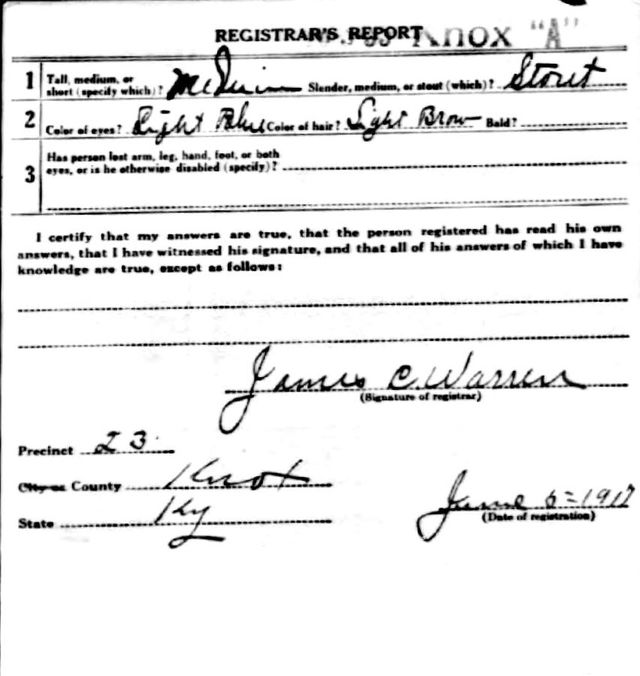 REGISTRAR'S REPORT KNOX "A"
1 Tall, medium, or short (specify which)? Medium Slender, medium, or stout (which)? Stout
2 Color of eyes? Light Blue Color of hair? Light Brow Bald?
3 Has person lost arm, leg, hand, foot, or both eyes, or is he otherwise disabled (specify)?
I certify that my answers are true, that the person registered has read his own
answers, that I have witnessed his signature, and that all of his answers of which I have
knowledge are true, except as follows:
James C. Warren
(Signature of registrar)
Precinct 23
City or County Knox
State Ky
June 5=1917
(Date of registration)